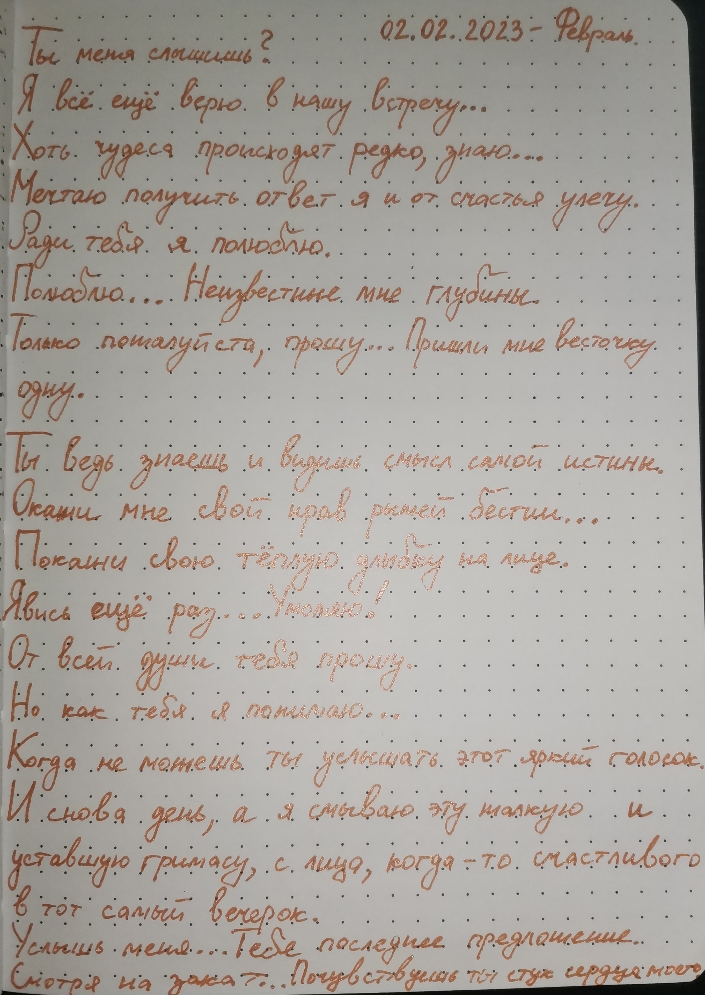 02.02.2023 - Февраль.
Ты меня слышишь?
Я всё ещё верю в нашу встречу...
Хоть чудеса происходят редко, знаю....
Мечтаю получить ответ я и от счастья улечу.
Ради тебя я полюблю.
Полюблю.... Неизвестные мне глубины.
Только пожалуйста, прошу... Пришли мне весточку
одну.
Ты ведь знаешь и видишь смысл самой истины.
Окажи мне свой нрав рыжей бестии...
Покажи свою тёплую улыбку на лице.
Явись ещё раз.... Умоляю!
От всей души тебя прошу.
Но как тебя я понимаю....
Когда не можешь ты услышать этот яркий голосок.
И снова день, а я смываю эту жалкую и
уставшую гримасу, с лица, когда-то счастливого
в тот самый вечерок.
Услышь меня... Тебе последнее предложение.
Смотря на закат... Почувствуешь ты стук сердца моего